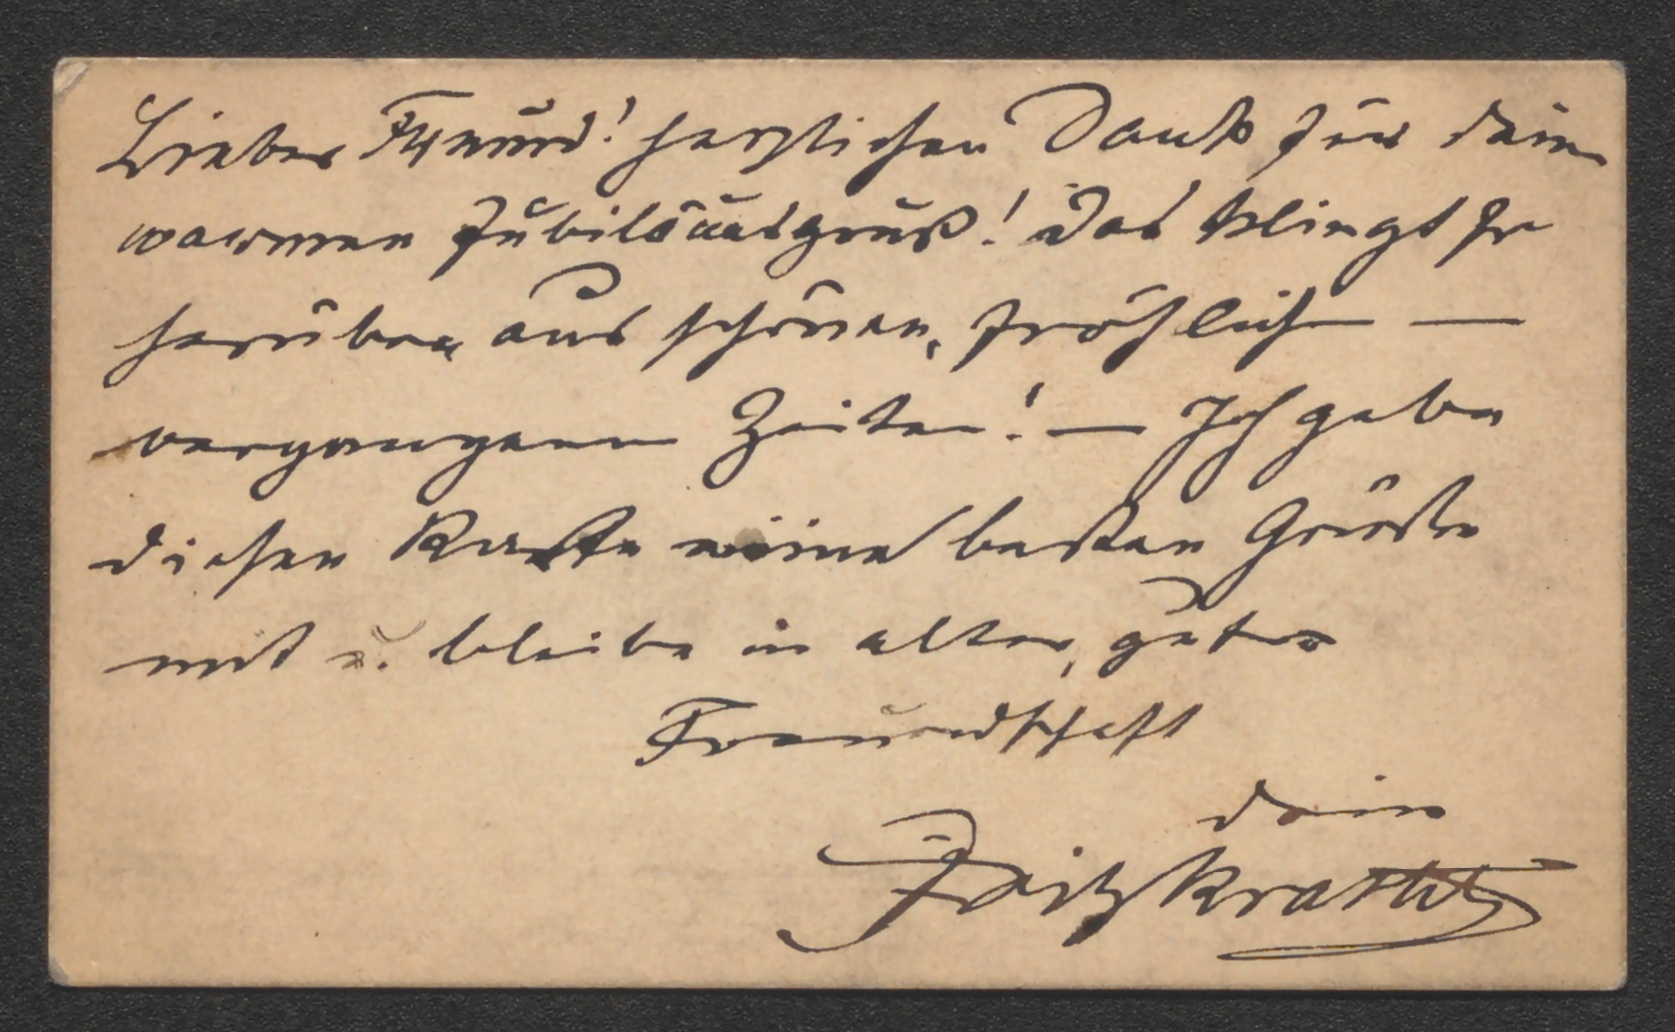 Lieber Freund! herzlichen Dank für dein
warmen Jubiläumsgruß! Das klingt so
herüber aus schönen, fröhlich —
vergangenen Zeiten! — Ich gebe
diesen Karte meine besten Grüße
mit u. bleibe in alter, guter
Freundschaft
dein
Fritz